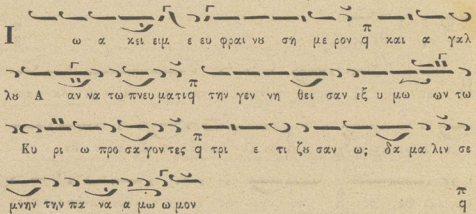 Ι ω α κει ειμ ε ευ φραι νȣ ση με ρον π q και α γαλ
λȣ Α αν να τω πνευ ματι π q την γεν νη θει σαν εξ υ μω ων τω
Κυ ρι ω προ σα γον τες π q τρι ε τι ζȣ σαν ω; δα μα λιν σε
μνην την πα να α μω ω μον π q